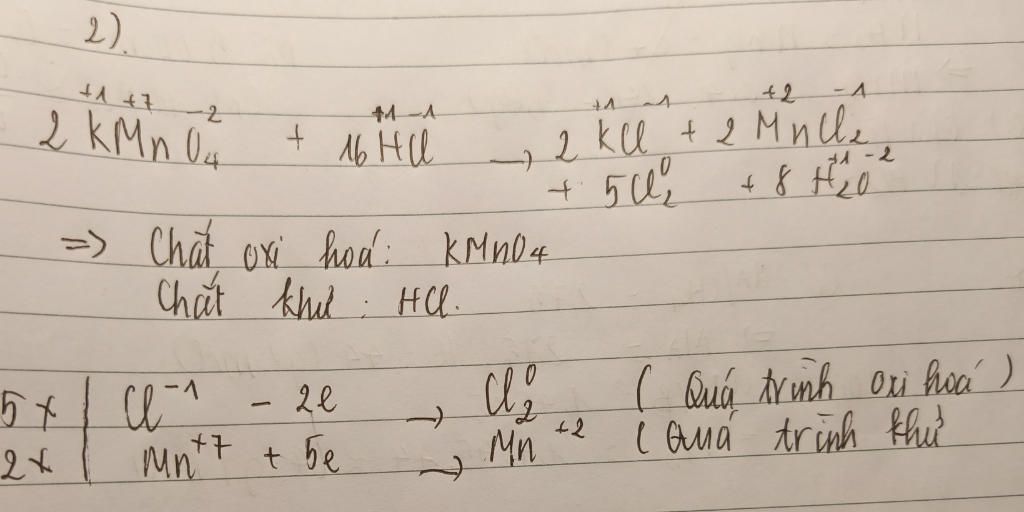 2).
+1 +7 -2 +1 -1 +1 -1 +2 -1
2 KMnO4 + 16 HCl → 2 KCl + 2 MnCl2
0 +1 -2
+ 5Cl2 + 8 H2O
=> Chất oxi hoá: KMnO4
Chất khử : HCl.
5x | Cl⁻¹ - 2e → Cl₂⁰ ( Quá trình oxi hoá )
2x | Mn⁺⁷ + 5e → Mn⁺² ( Quá trình khử